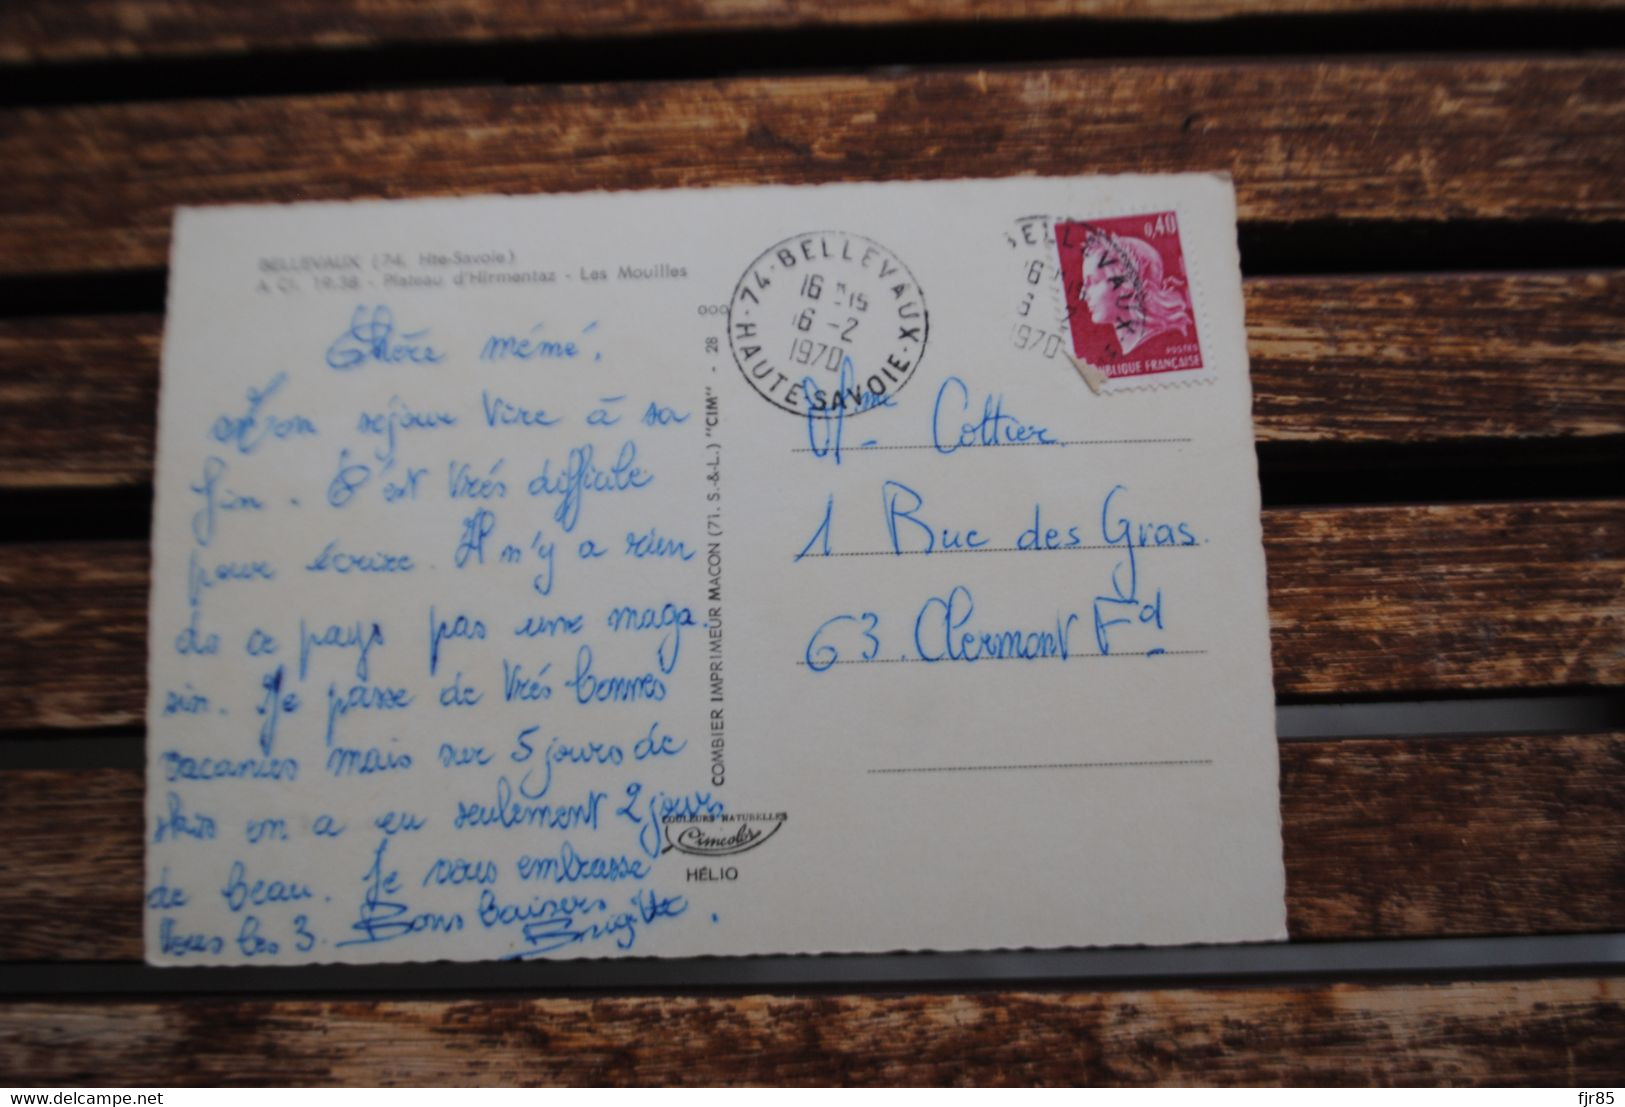 BELLEVAUX (74. Hte-Savoie)
A Ci. 19.38 - Plateau d'Hirmentaz - Les Mouilles
Chère mémé,
Mon séjour tire à sa
fin. C'est très difficile
pour écrire. Il n'y a rien
ds ce pays pas une maga.
sin. Je passe de très bonnes
vacances mais sur 5 jours de
skis on a eu seulement 2 jours
de beau. Je vous embrasse
tous les 3. Bons baisers
Brigitte.
COMBIER IMPRIMEUR MACON (71. S.-&-L.) "CIM" - 28
COULEURS NATURELLES
Cimcolor
HÉLIO
74 - BELLEVAUX
16 H15
16 -2
1970
HAUTE-SAVOIE
BELLEVAUX
1970
0,40
POSTES
RÉPUBLIQUE FRANÇAISE
Mme Cottier.
1 Rue des Gras.
63. Clermont Fd
fjr85
delcampe.net